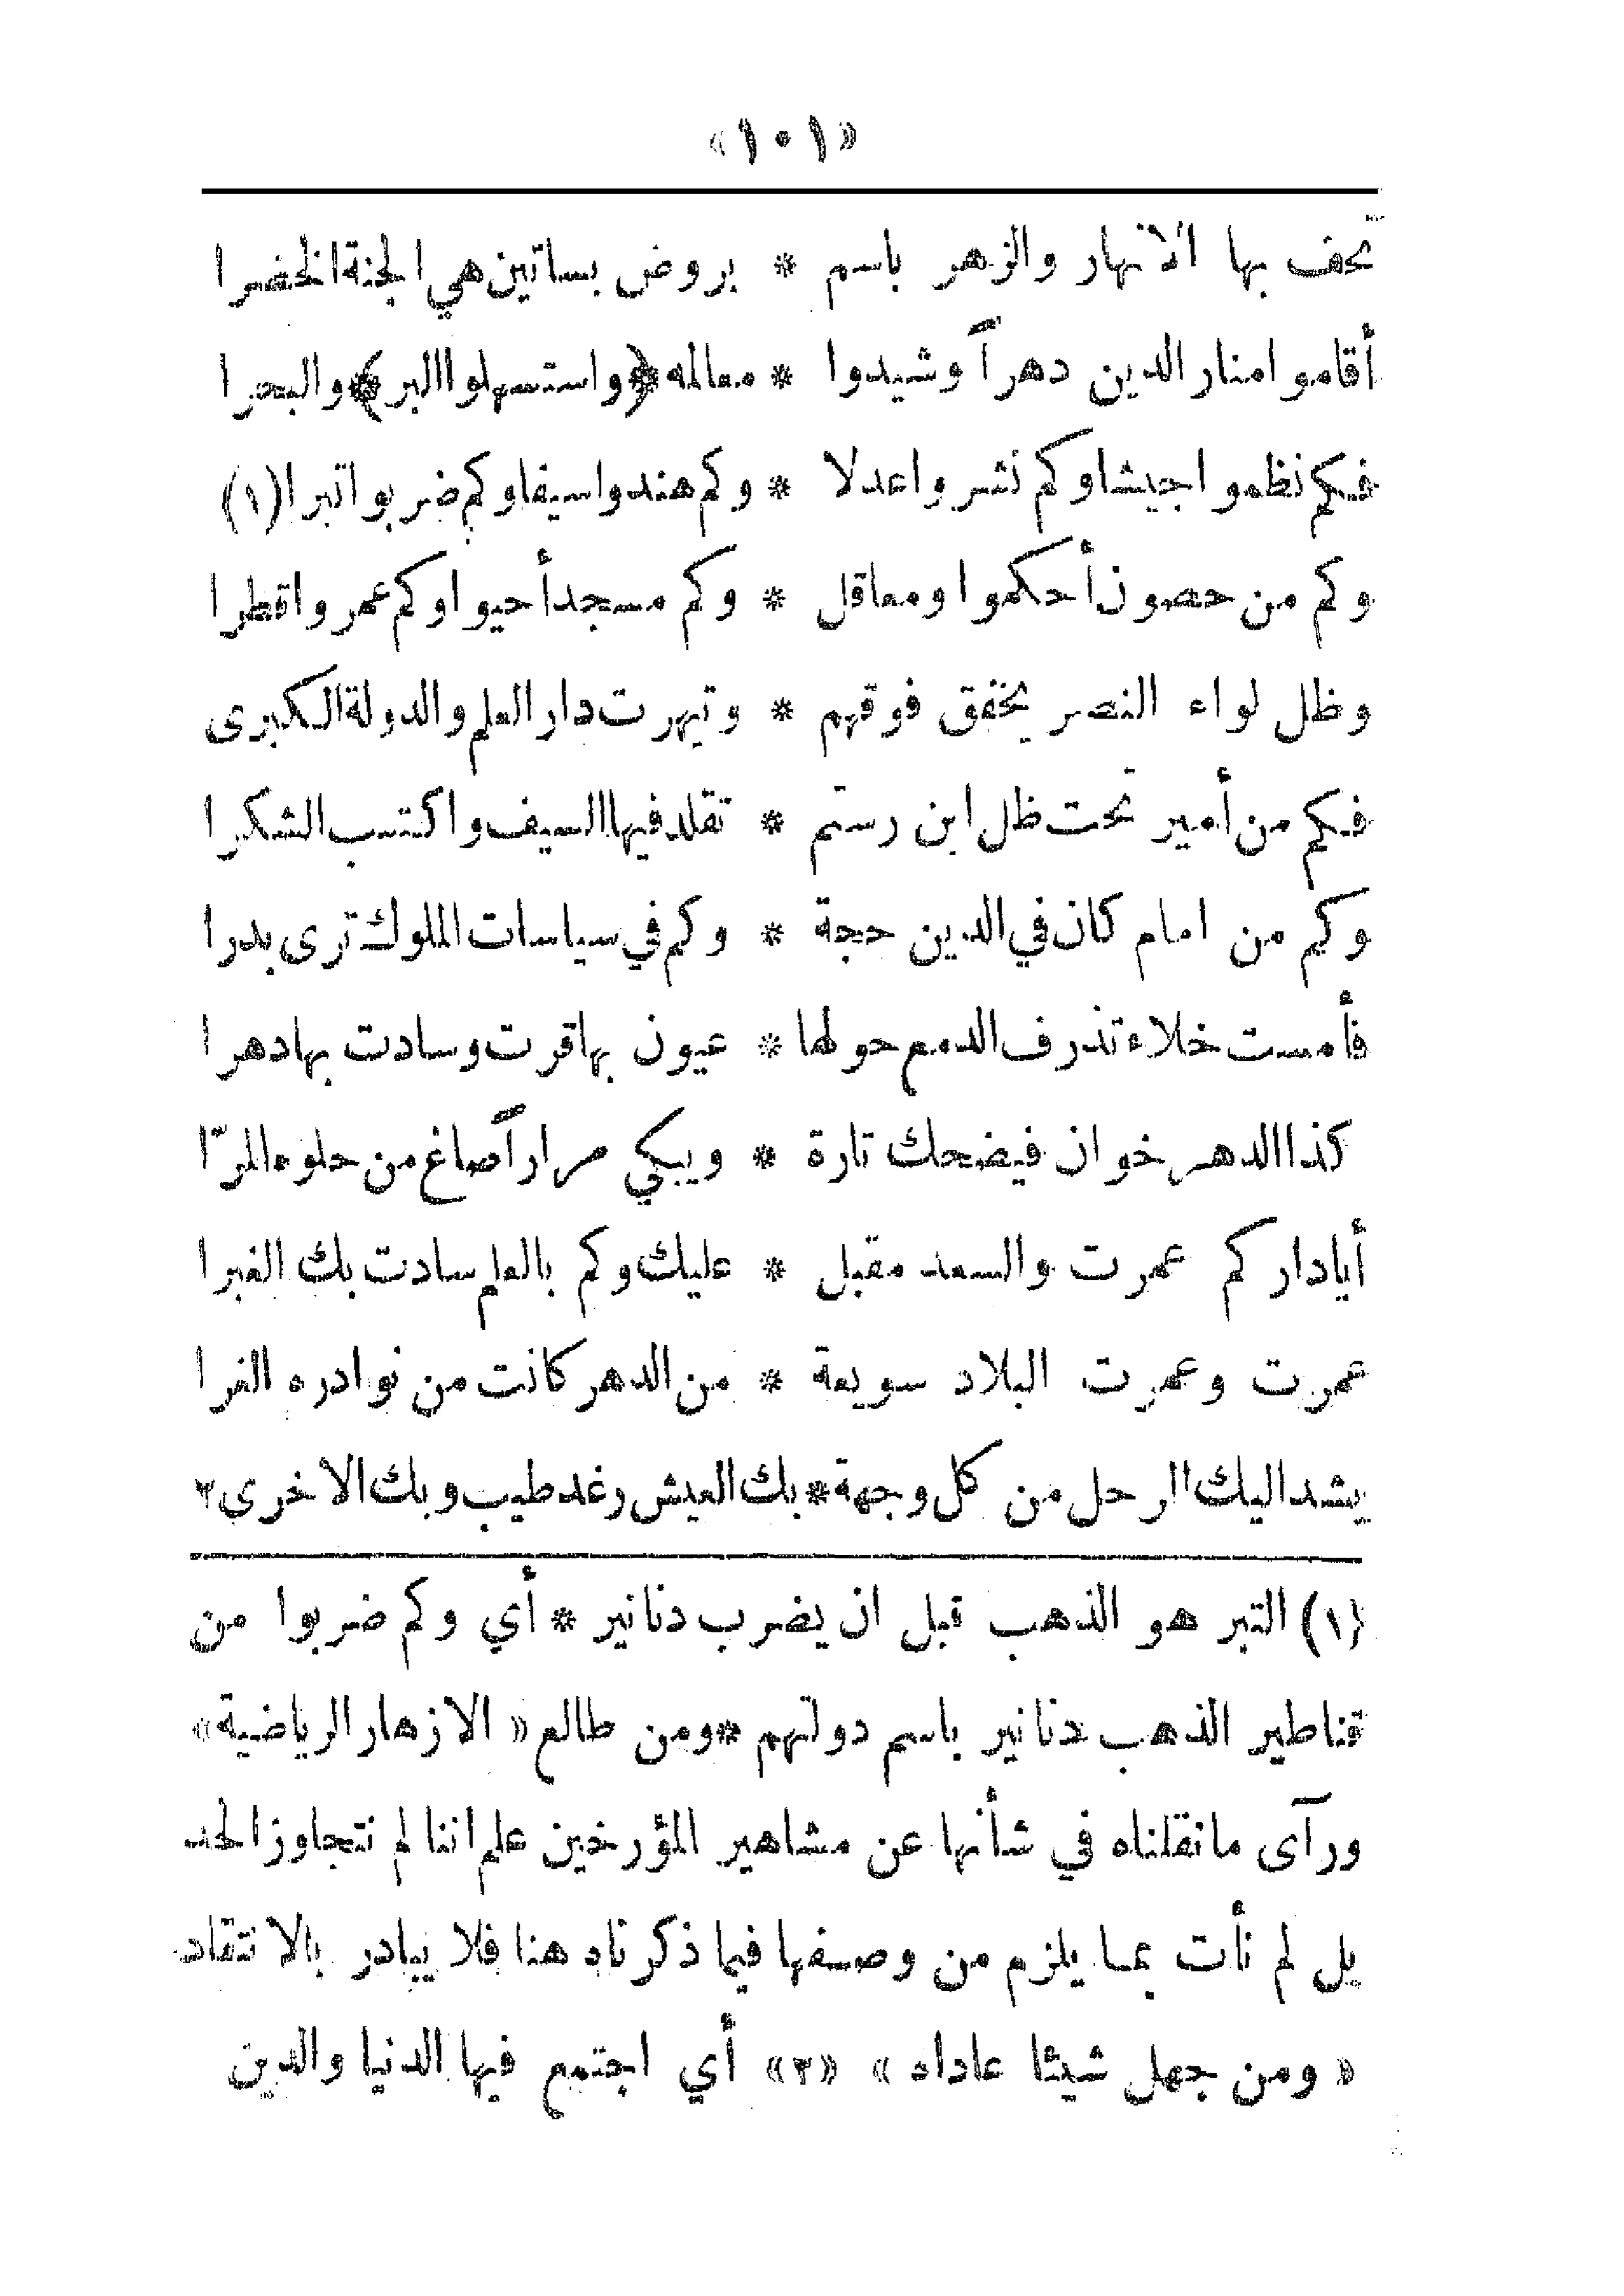 «١٠١»
تحف بها الانهار والزهر باسم * بروض بساتين هي الجنة الخضرا
أقاموا منار الدين دهراً وشيدوا * معالمه ﴿واستسهلوا البر﴾ والبحرا
فكم نظموا جيشا وكم نشروا عدلا * وكم هندوا سيفا وكم ضربوا تبرا (١)
وكم من حصون أحكموا ومعاقل * وكم مسجد أحيوا وكم عمروا قطرا
وظل لواء النصر يخفق فوقهم * وتيهرت دار العلم والدولة الكبرى
فكم من أمير تحت ظل ابن رستم * تقلد فيها السيف واكتسب الشكرا
وكم من امام كان في الدين حجة * وكم في سياسات الملوك ترى بدرا
فأمست خلاء تذرف الدمع حولها * عيون بها قرت وسادت بها دهرا
كذا الدهر خوان فيضحك تارة * ويبكي مراراً صاغ من حلوه المرّا
أيا دار كم عمرت والسعد مقبل * عليك وكم بالعلم سادت بك الغبرا
عمرت وعمرت البلاد سويعة * من الدهر كانت من نوادره الغرا
يشد اليك الرحل من كل وجهة * بك العيش رغد طيب وبك الاخرى ٢
(١) التبر هو الذهب قبل ان يضرب دنانير * أي وكم ضربوا من
قناطير الذهب دنانير باسم دولتهم * ومن طالع « الازهار الرياضية »
ورآى ما نقلناه في شأنها عن مشاهير المؤرخين علم اننا لم نتجاوز الحد
بل لم نأت بما يلزم من وصفها فيما ذكرناه هنا فلا يبادر بالانتقاد
« ومن جهل شيئا عاداه » «٢» أي اجتمع فيها الدنيا والدين